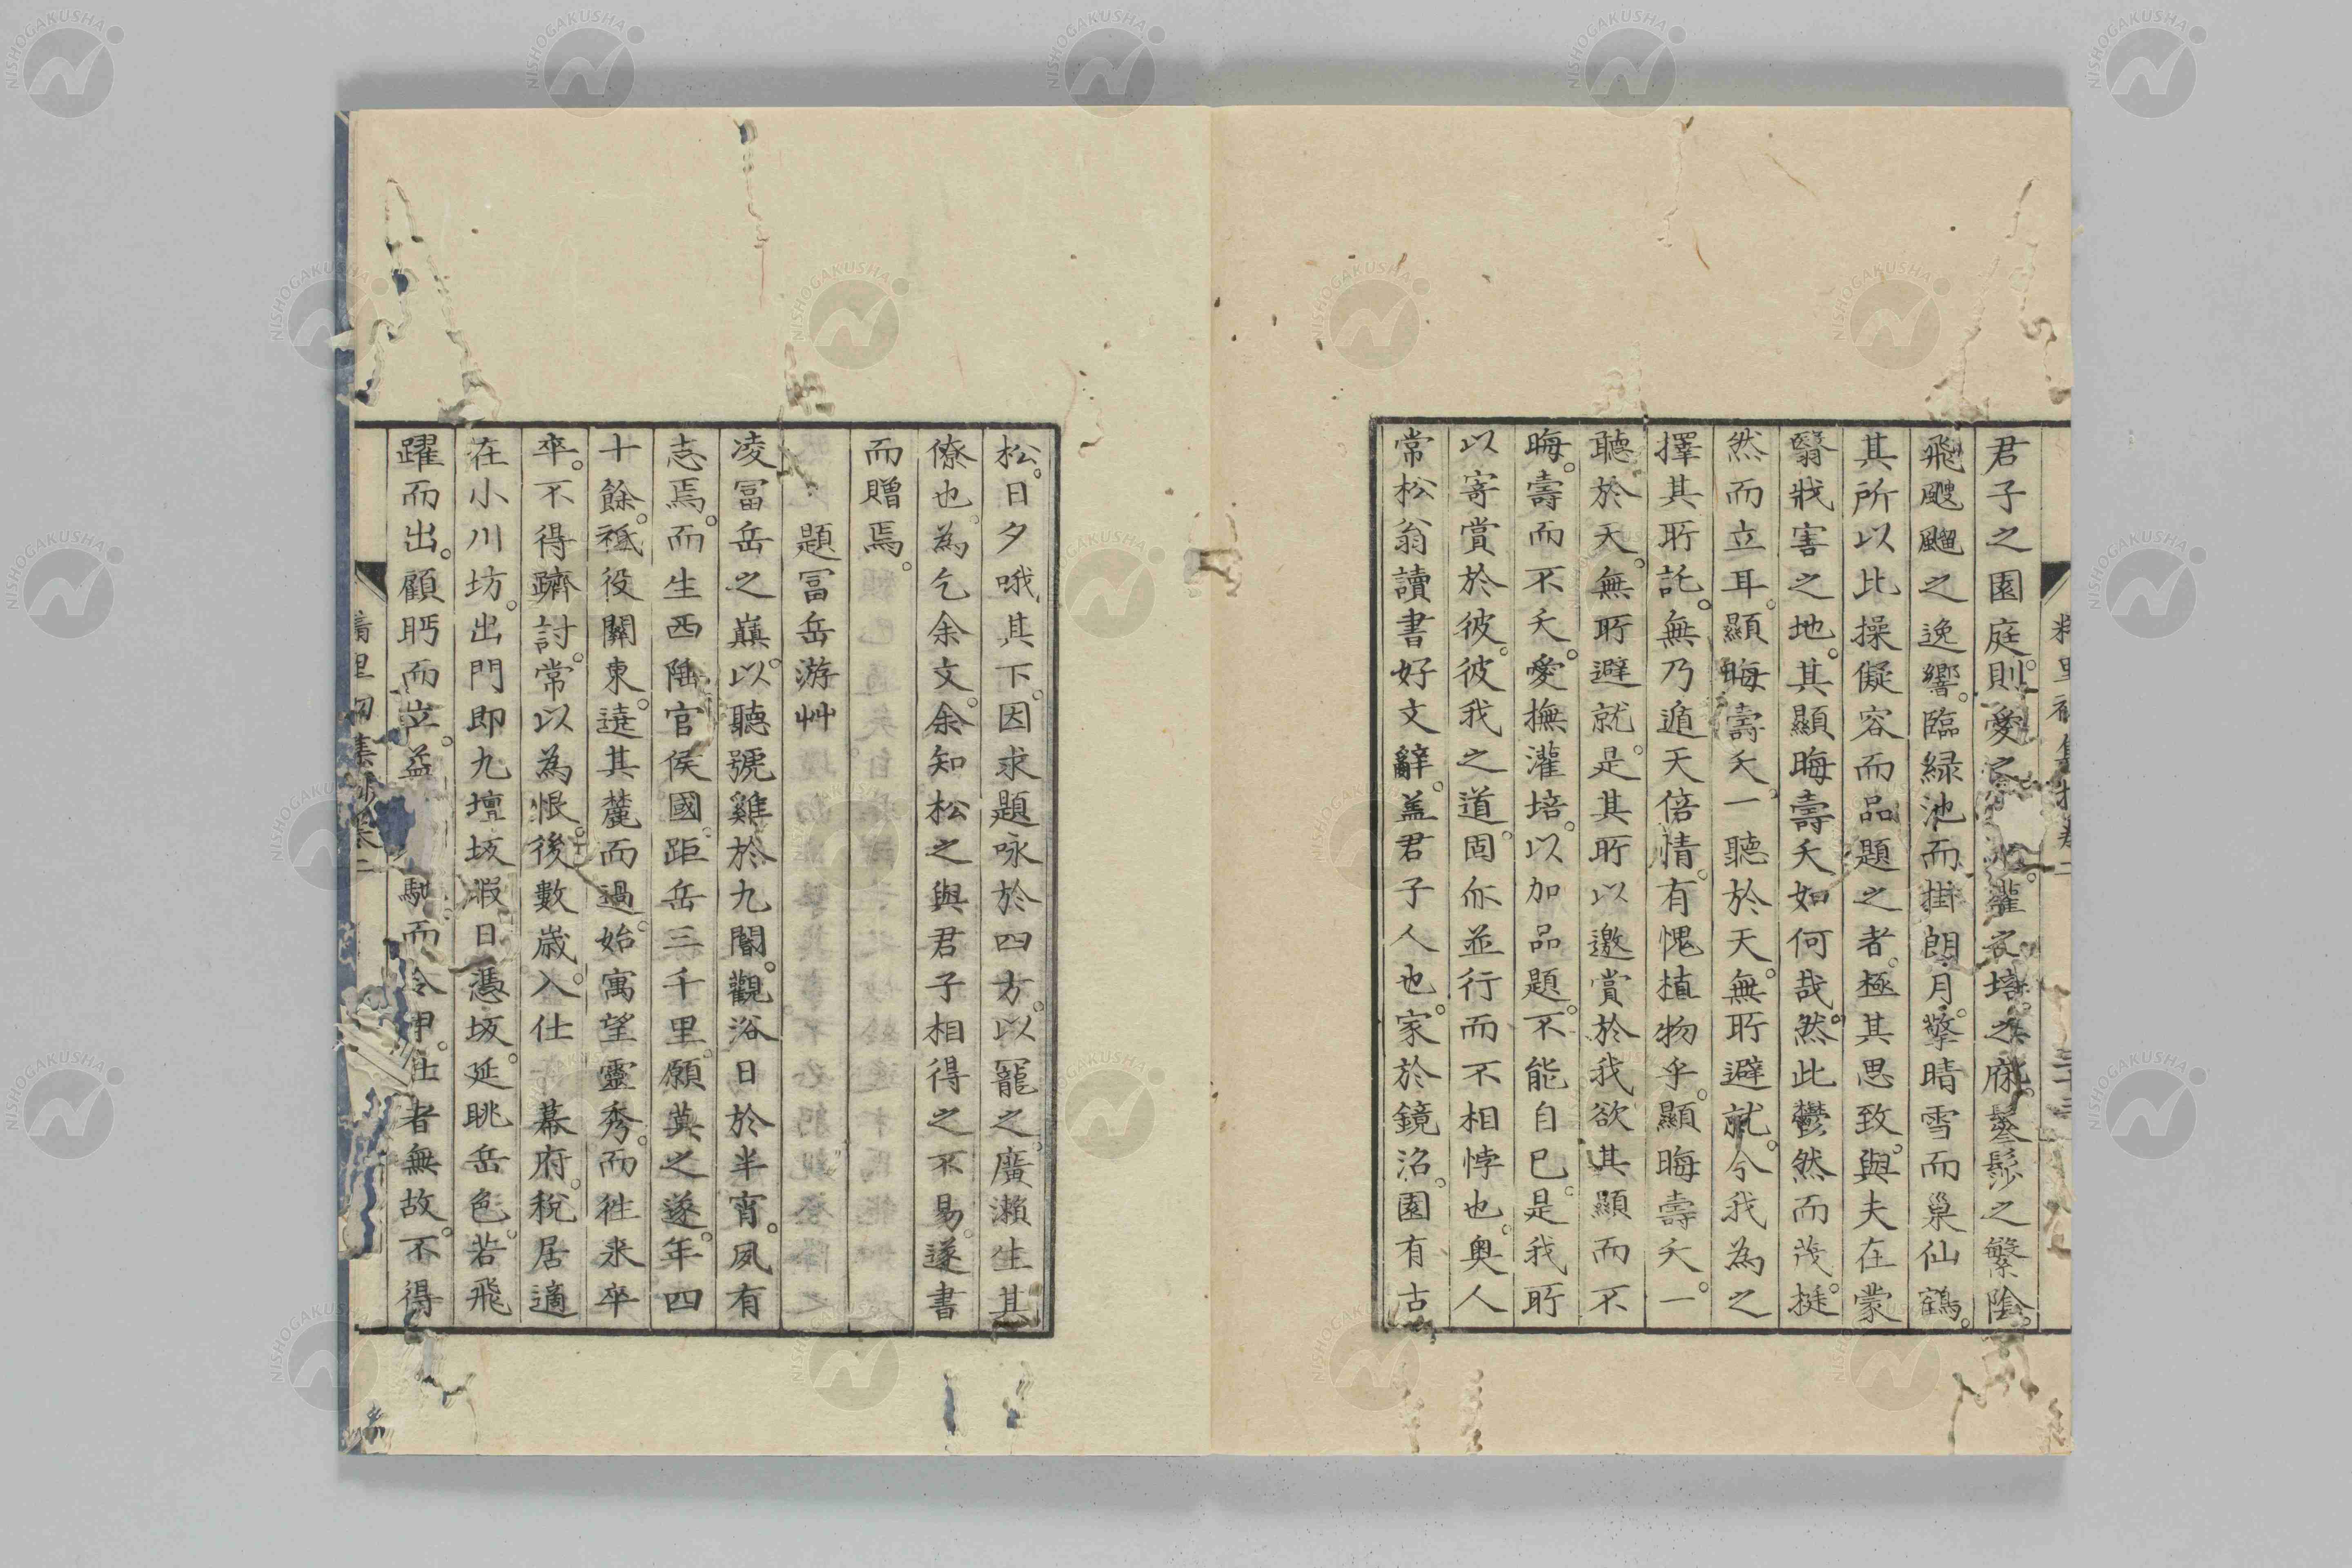 君子之園庭。則愛之灌之培之。庥鬖髿之繁陰。
飛颼飀之逸響。臨緑池而掛朗月。擎晴雪而巢仙鶴。
其所以比操儗容而品題之者。極其思致。與夫在蒙
翳戕害之地。其顯晦壽夭如何哉。然此鬱然而茂。挺
然而立耳。顯晦壽夭。一聽於天。無所避就。今我為之
擇其所託。無乃遁天倍情。有愧植物乎。顯晦壽夭。一
聽於天。無所避就。是其所以邀賞於我。欲其顯而不
晦。壽而不夭。愛撫灌培。以加品題。不能自已。是我所
以寄賞於彼。彼我之道。固亦並行而不相悖也。奥人
常松翁讀書好文辭。蓋君子人也。家於鏡沼。園有古
松。日夕哦其下。因求題咏於四方。以寵之。廣瀨生其
僚也。為乞余文。余知松之與君子相得之不易。遂書
而贈焉。
題冨岳游艸
凌冨岳之巓。以聽號雞於九閽。觀浴日於半宵。夙有
志焉。而生西陲官侯國。距岳三千里。願莫之遂。年四
十餘。祗役關東。遶其麓而過。始寓望靈秀。而徃来卒
卒。不得躋討。常以為恨。後數歲。入仕　幕府。稅居適
在小川坊。出門即九壇坂。暇日憑坂。延眺岳色。若飛
躍而出。顧眄而立。益馳。而令甲。仕者無故。不得
NISHOGAKUSHA